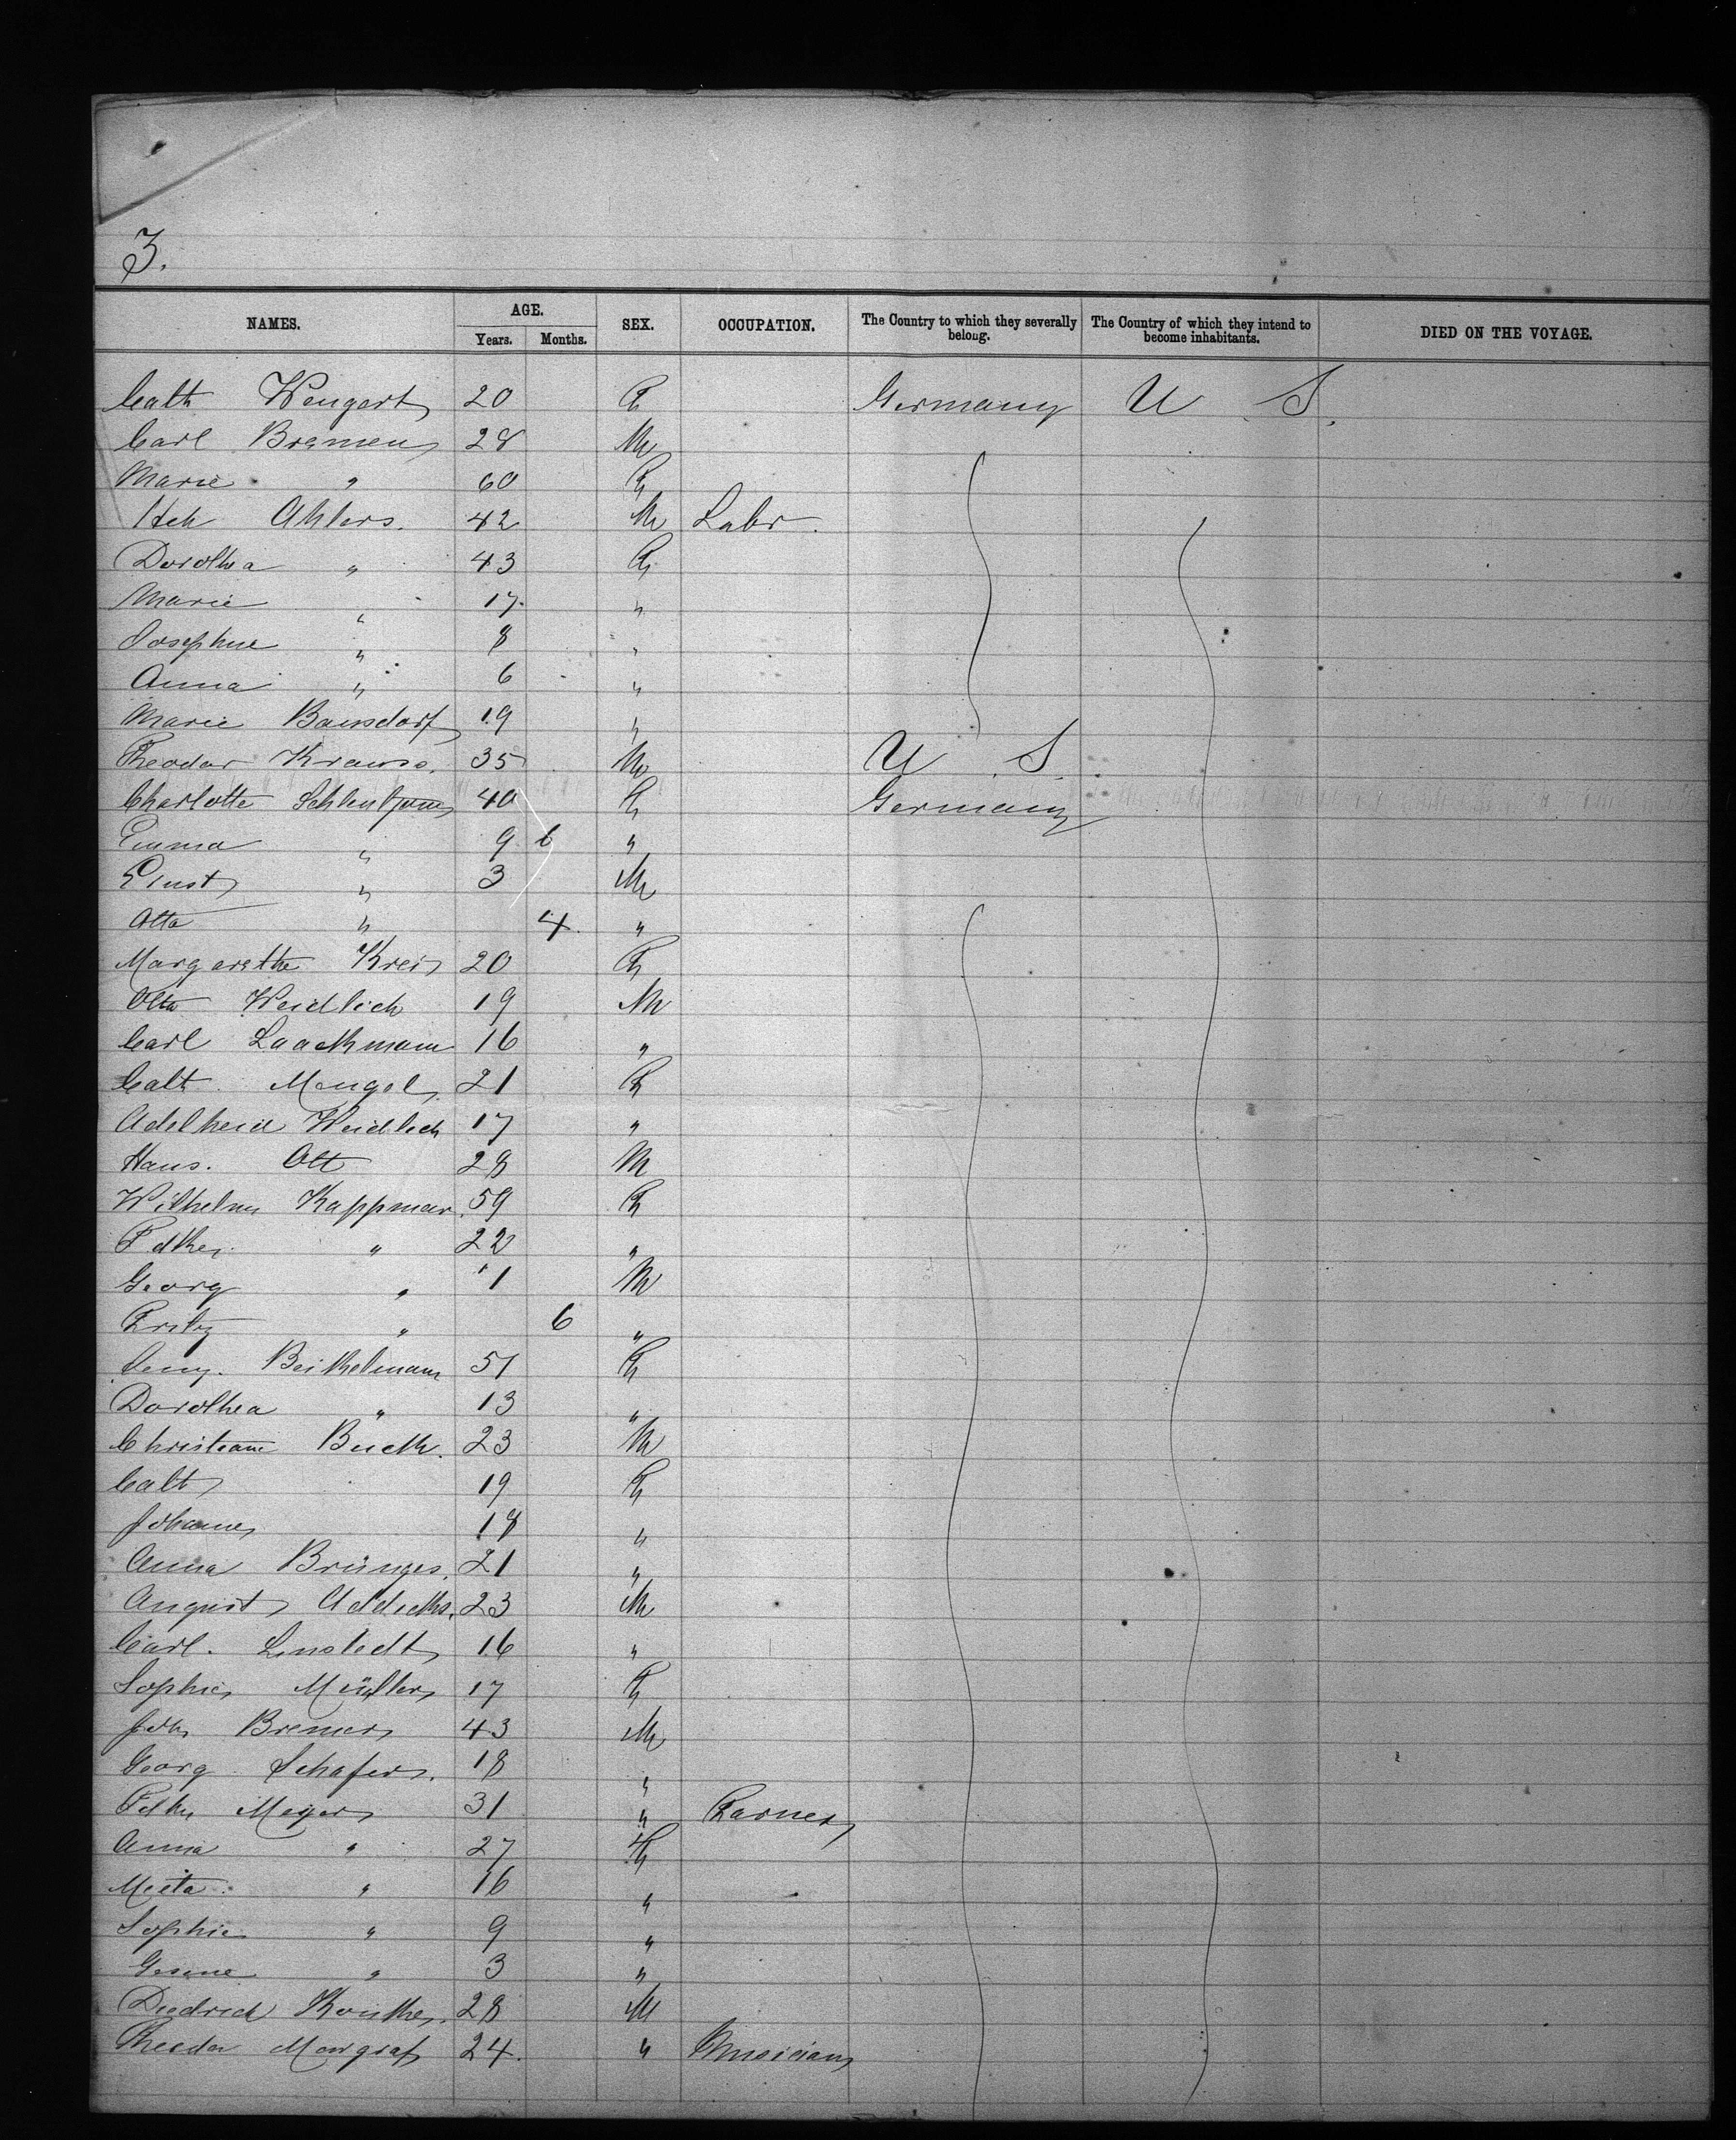 3.
NAMES. AGE. SEX. OCCUPATION. The Country to which they severally belong. The Country of which they intend to become inhabitants. DIED ON THE VOYAGE.
Years. Months.
Cath Wengert 20 F Germany U S.
Carl Bremen 28 M
Marie " 60 F
Hch Ahlers. 42 M Labr.
Dorothea " 43 F
Marie " 17 "
Josephine " 8 "
Anna " 6 "
Marie Bansdorf 19 "
Theodor Krause. 35 M U S.
Charlotte 40 F Germany
Emma " 9 6 "
Ernst " 3 M
Otto " 4 "
Margarethe Kreis 20 F
Otto Weidlich 19 M
Carl 16 "
Cath. Mengel 21 F
Adelheid Weidlich 17 "
Hans. Ott 28 M
Wilhelm Kappman 59 F
" 22 "
Georg " 1 M
Fritz " 6 "
Beithelmann 51 F
Dorothea " 13 "
Christian Buck. 23 M
Cath 19 F
Johanne 18 "
Anna Brünges. 21 "
August Addicks. 23 M
Carl. Linstedt 16 "
Sophie Müller 17 F
Joh Bremer 43 M
Georg Schafer. 18 "
Meyer 31 " Farmer
Anna " 27 F
Meta " 16 "
Sophie " 9 "
Gesine " 3 "
Diedrich 28 M
Theodor Margraf 24. " Musician